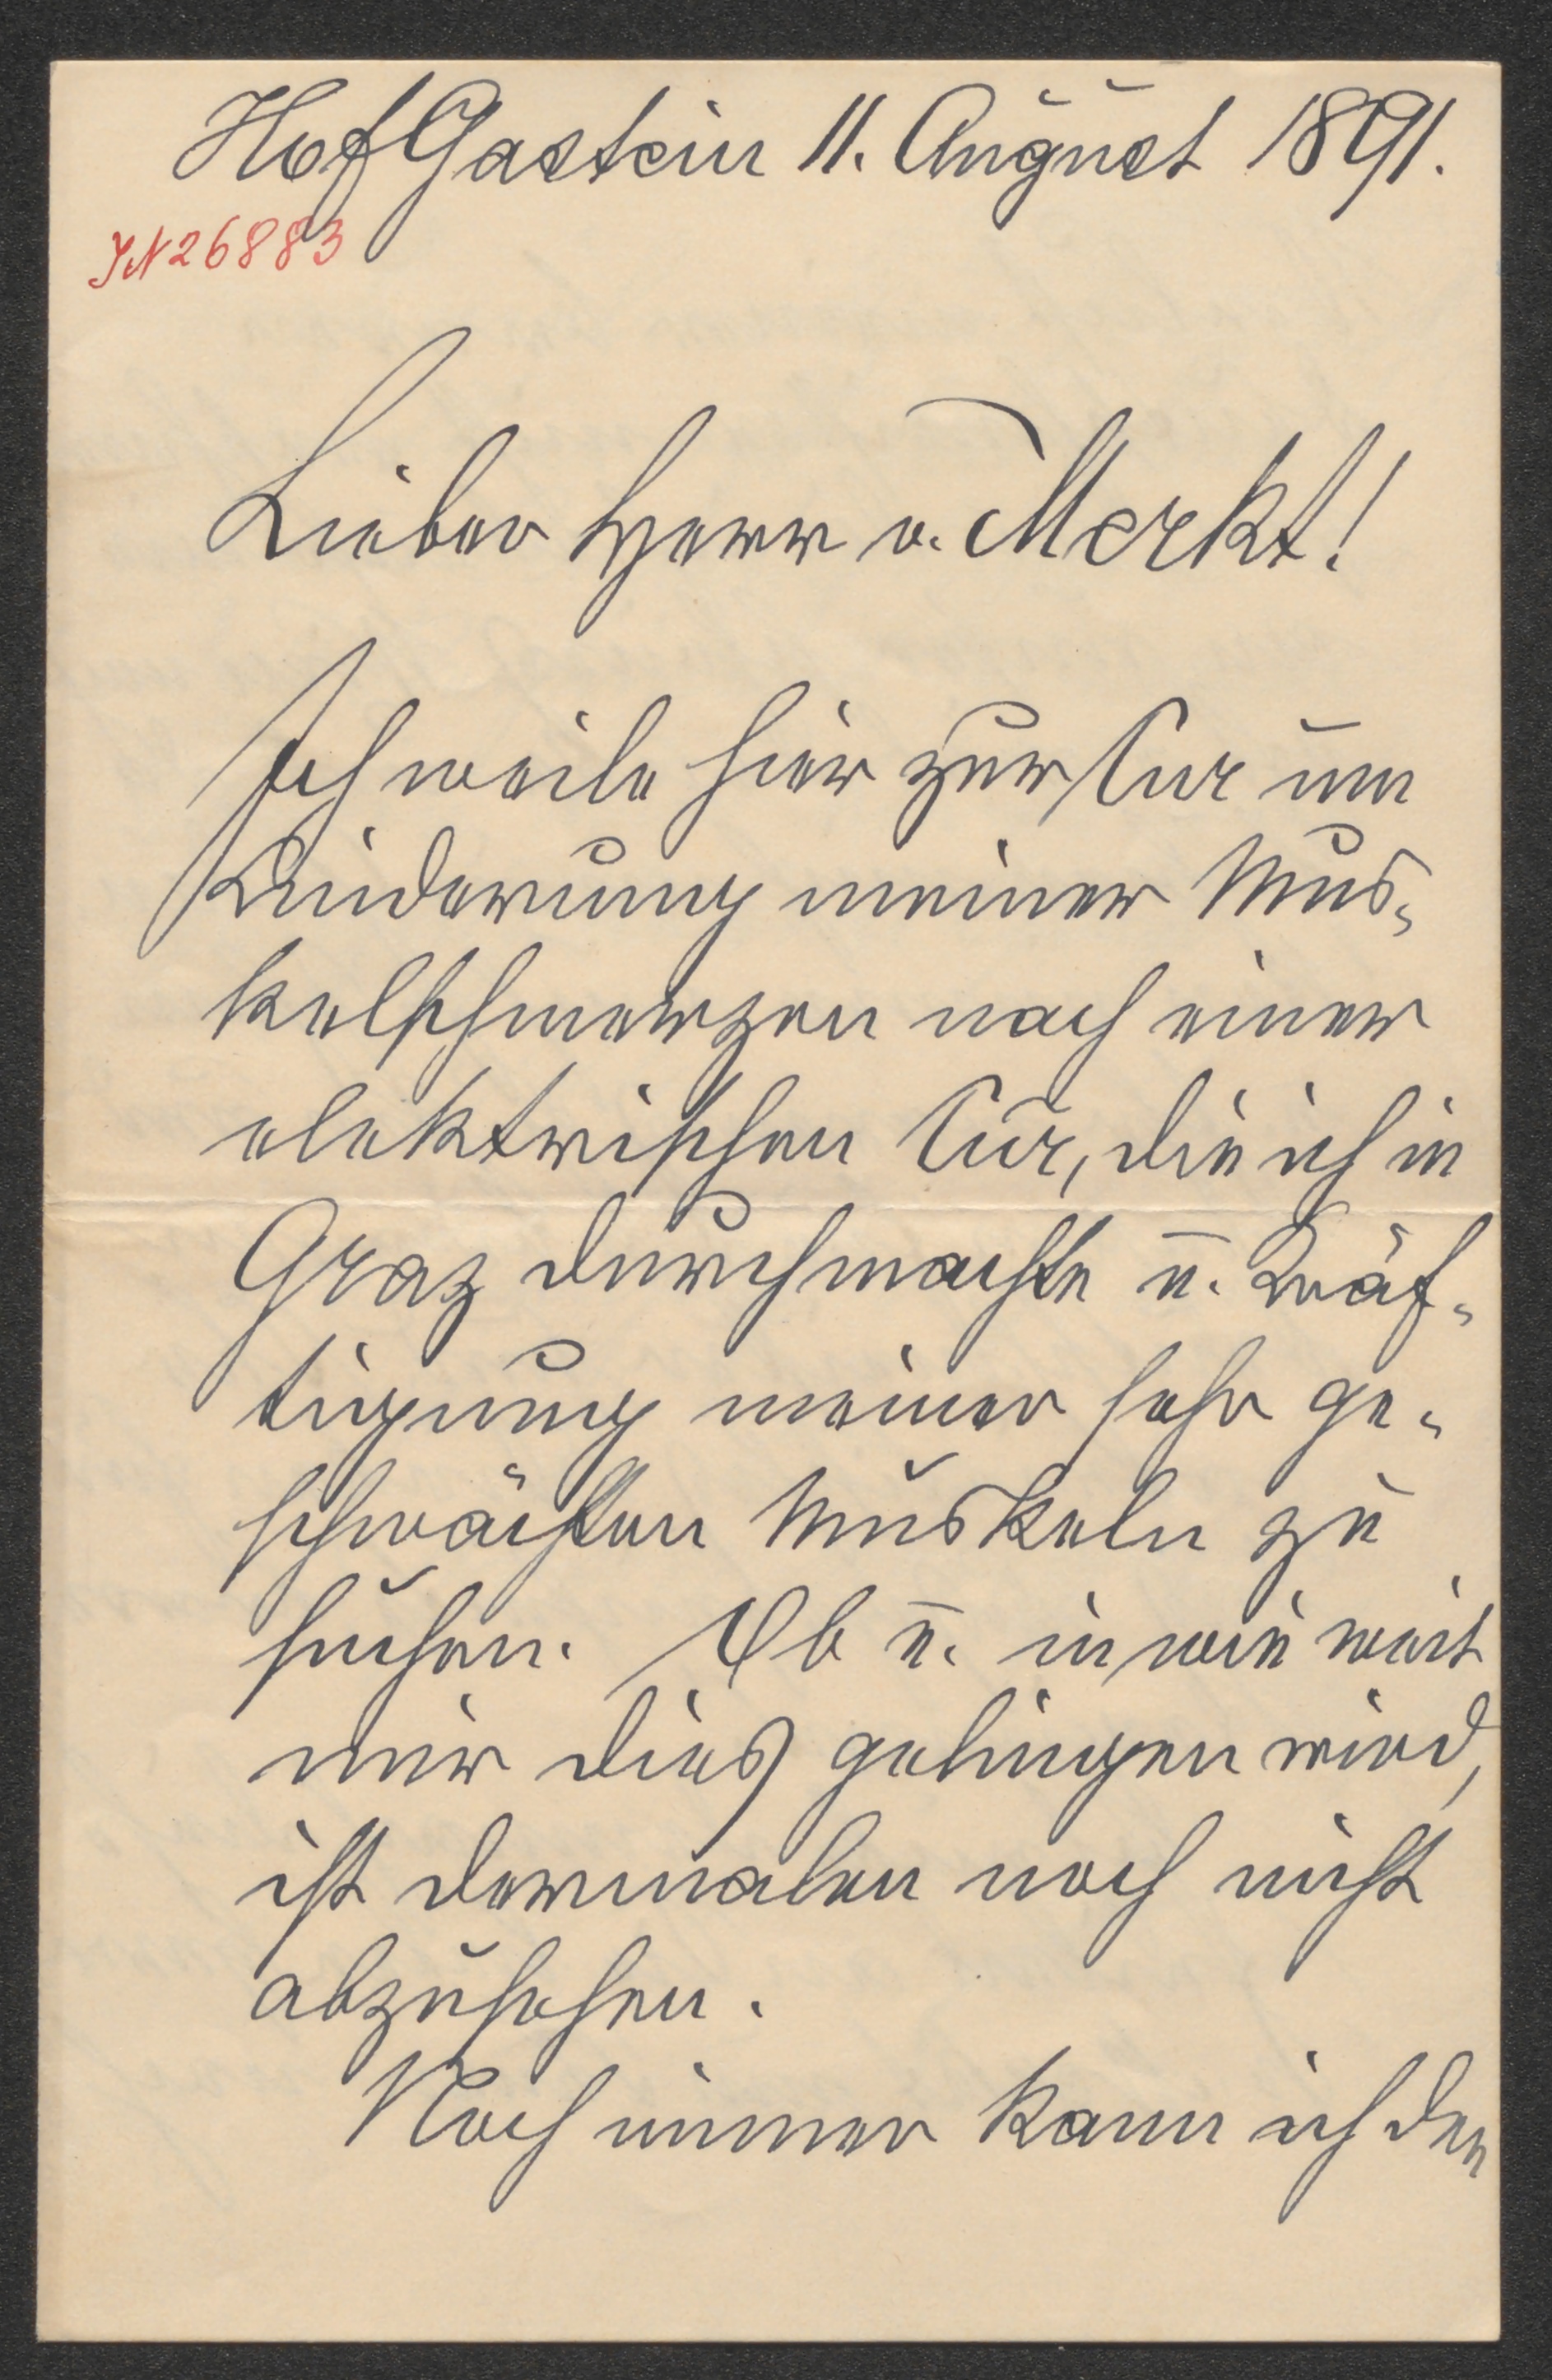 HofGastein 11. August 1891.
JN 26883
Lieber Herr v. Merkt!
Ich weile hier zur Cur um
Linderung meiner Mus-
kelschmerzen nach einer
elektrischen Cur, die ich in
Graz durchmachte u. Kräf-
tigung meiner sehr ge-
schwächten Muskeln zu
suchen. Ob u. in wie weit
mir dies gelingen wird,
ist dermalen noch nicht
abzusehen.
Noch immer kann ich den